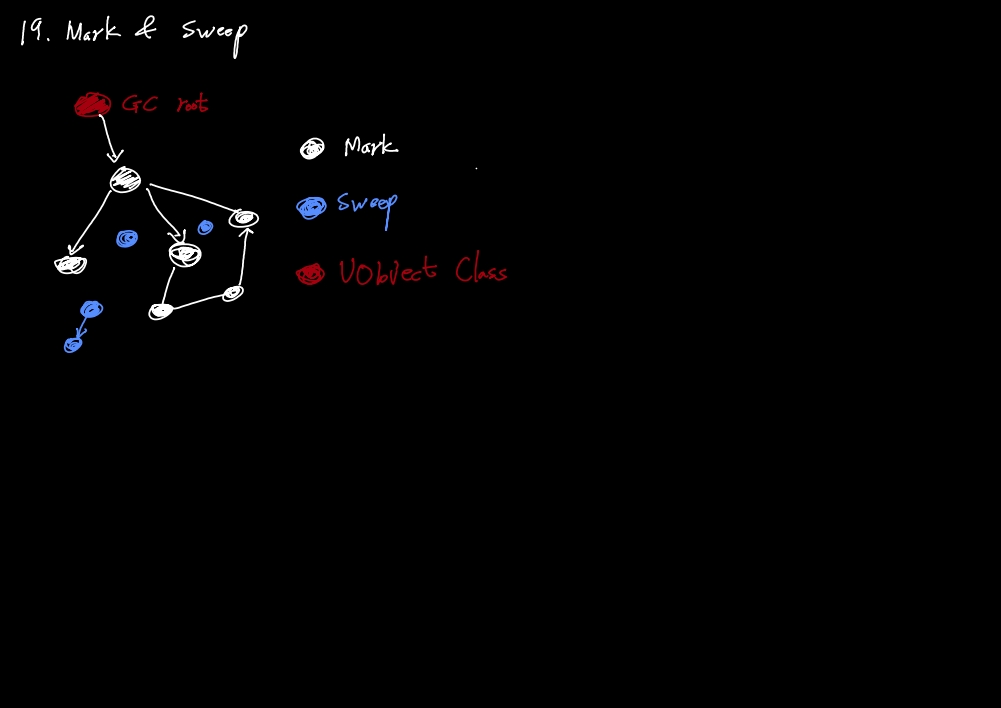 19. Mark & Sweep
GC root
Mark
Sweep
UObject Class